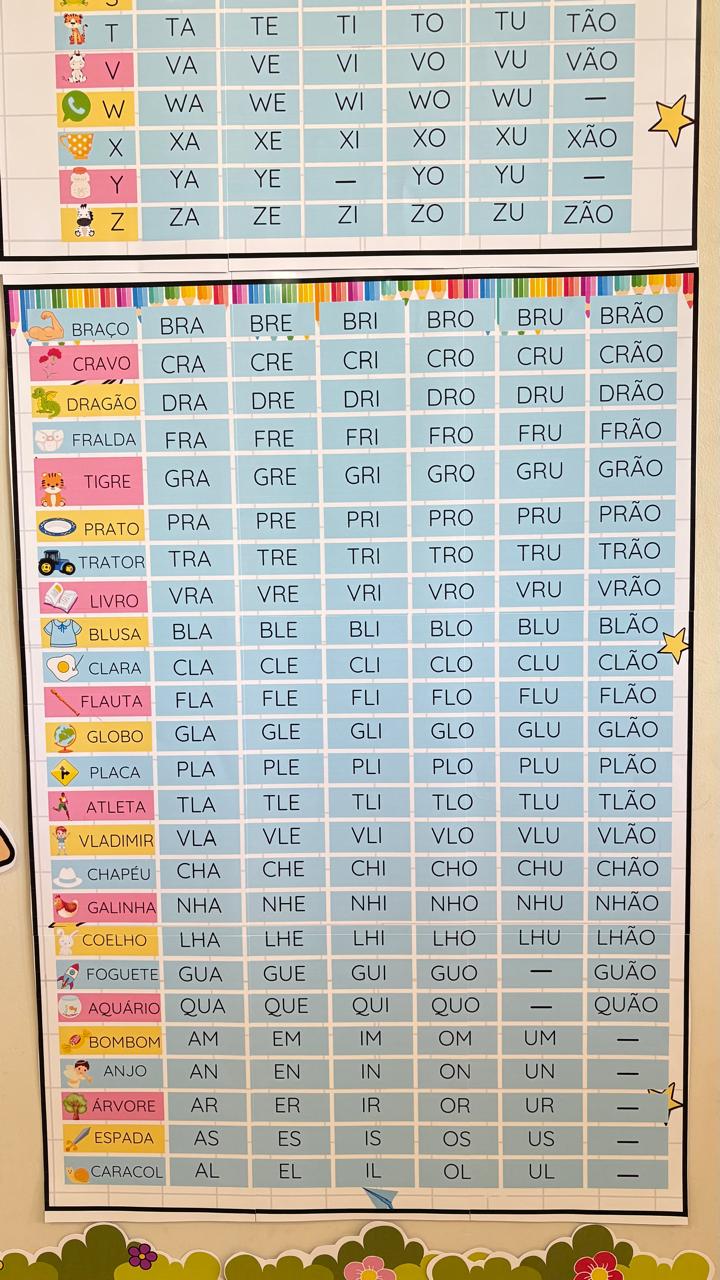 T TA TE TI TO TU TÃO
V VA VE VI VO VU VÃO
W WA WE WI WO WU —
X XA XE XI XO XU XÃO
Y YA YE — YO YU —
Z ZA ZE ZI ZO ZU ZÃO
BRAÇO BRA BRE BRI BRO BRU BRÃO
CRAVO CRA CRE CRI CRO CRU CRÃO
DRAGÃO DRA DRE DRI DRO DRU DRÃO
FRALDA FRA FRE FRI FRO FRU FRÃO
TIGRE GRA GRE GRI GRO GRU GRÃO
PRATO PRA PRE PRI PRO PRU PRÃO
TRATOR TRA TRE TRI TRO TRU TRÃO
LIVRO VRA VRE VRI VRO VRU VRÃO
BLUSA BLA BLE BLI BLO BLU BLÃO
CLARA CLA CLE CLI CLO CLU CLÃO
FLAUTA FLA FLE FLI FLO FLU FLÃO
GLOBO GLA GLE GLI GLO GLU GLÃO
PLACA PLA PLE PLI PLO PLU PLÃO
ATLETA TLA TLE TLI TLO TLU TLÃO
VLADIMIR VLA VLE VLI VLO VLU VLÃO
CHAPÉU CHA CHE CHI CHO CHU CHÃO
GALINHA NHA NHE NHI NHO NHU NHÃO
COELHO LHA LHE LHI LHO LHU LHÃO
FOGUETE GUA GUE GUI GUO — GUÃO
AQUÁRIO QUA QUE QUI QUO — QUÃO
BOMBOM AM EM IM OM UM —
ANJO AN EN IN ON UN —
ÁRVORE AR ER IR OR UR —
ESPADA AS ES IS OS US —
CARACOL AL EL IL OL UL —